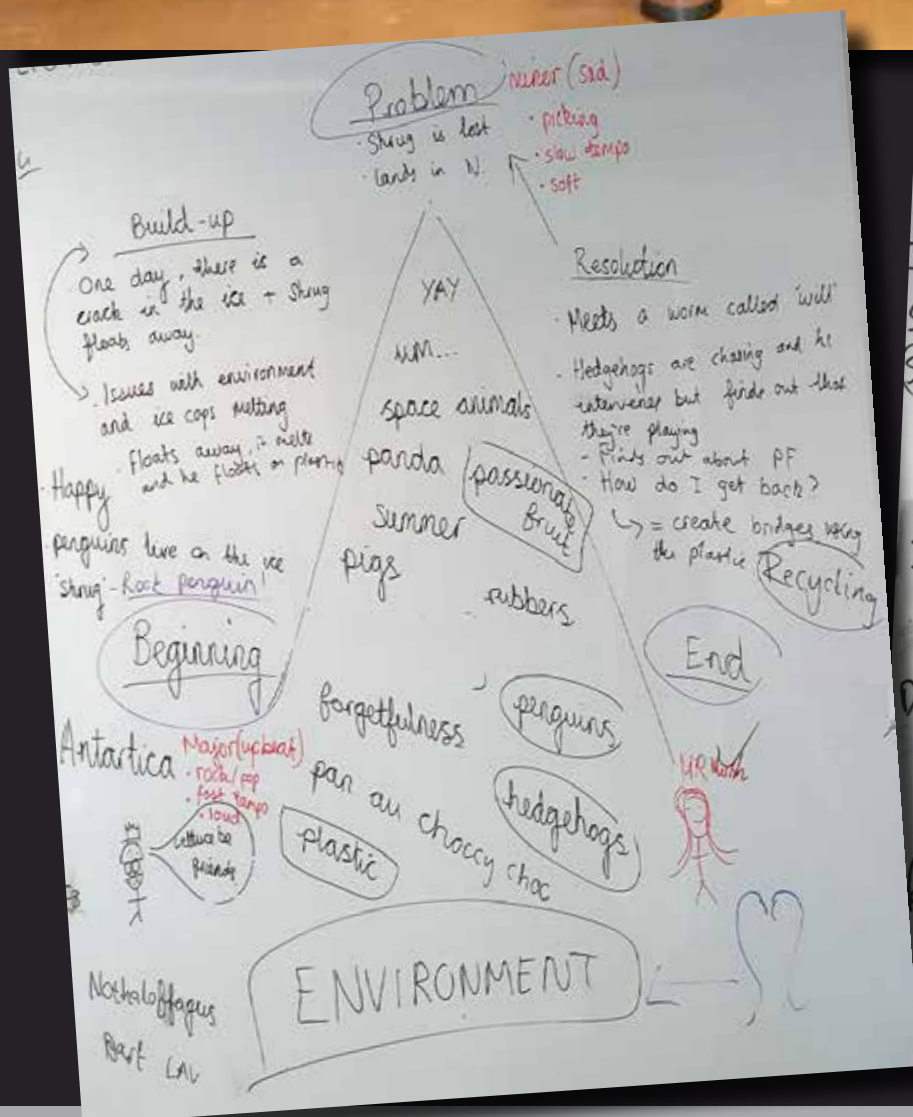 Problem
minor (sad)
· Shrug is lost
· lands in N.
· picking
· slow tempo
· soft
Build-up
· One day, there is a
crack in the ice + Shrug
floats away.
· Issues with environment
and ice caps melting
· Floats away, it melts
and he floats on plastic
· Happy
· penguins live on the ice
'Shrug' - Rock penguin!
Beginning
Antartica
Major (upbeat)
· rock/pop
· fast tempo
· loud
Lettuce be
friends
YAY
UM...
space animals
panda
passionate
fruit
summer
pigs
rubbers
forgetfulness
penguins
pan au choccy choc
hedgehogs
plastic
Resolution
· Meets a worm called 'will'
· Hedgehogs are chasing and he
intervenes but finds out that
they're playing
- Finds out about PF
- How do I get back?
= create bridges using
the plastic
Recycling
End
ENVIRONMENT